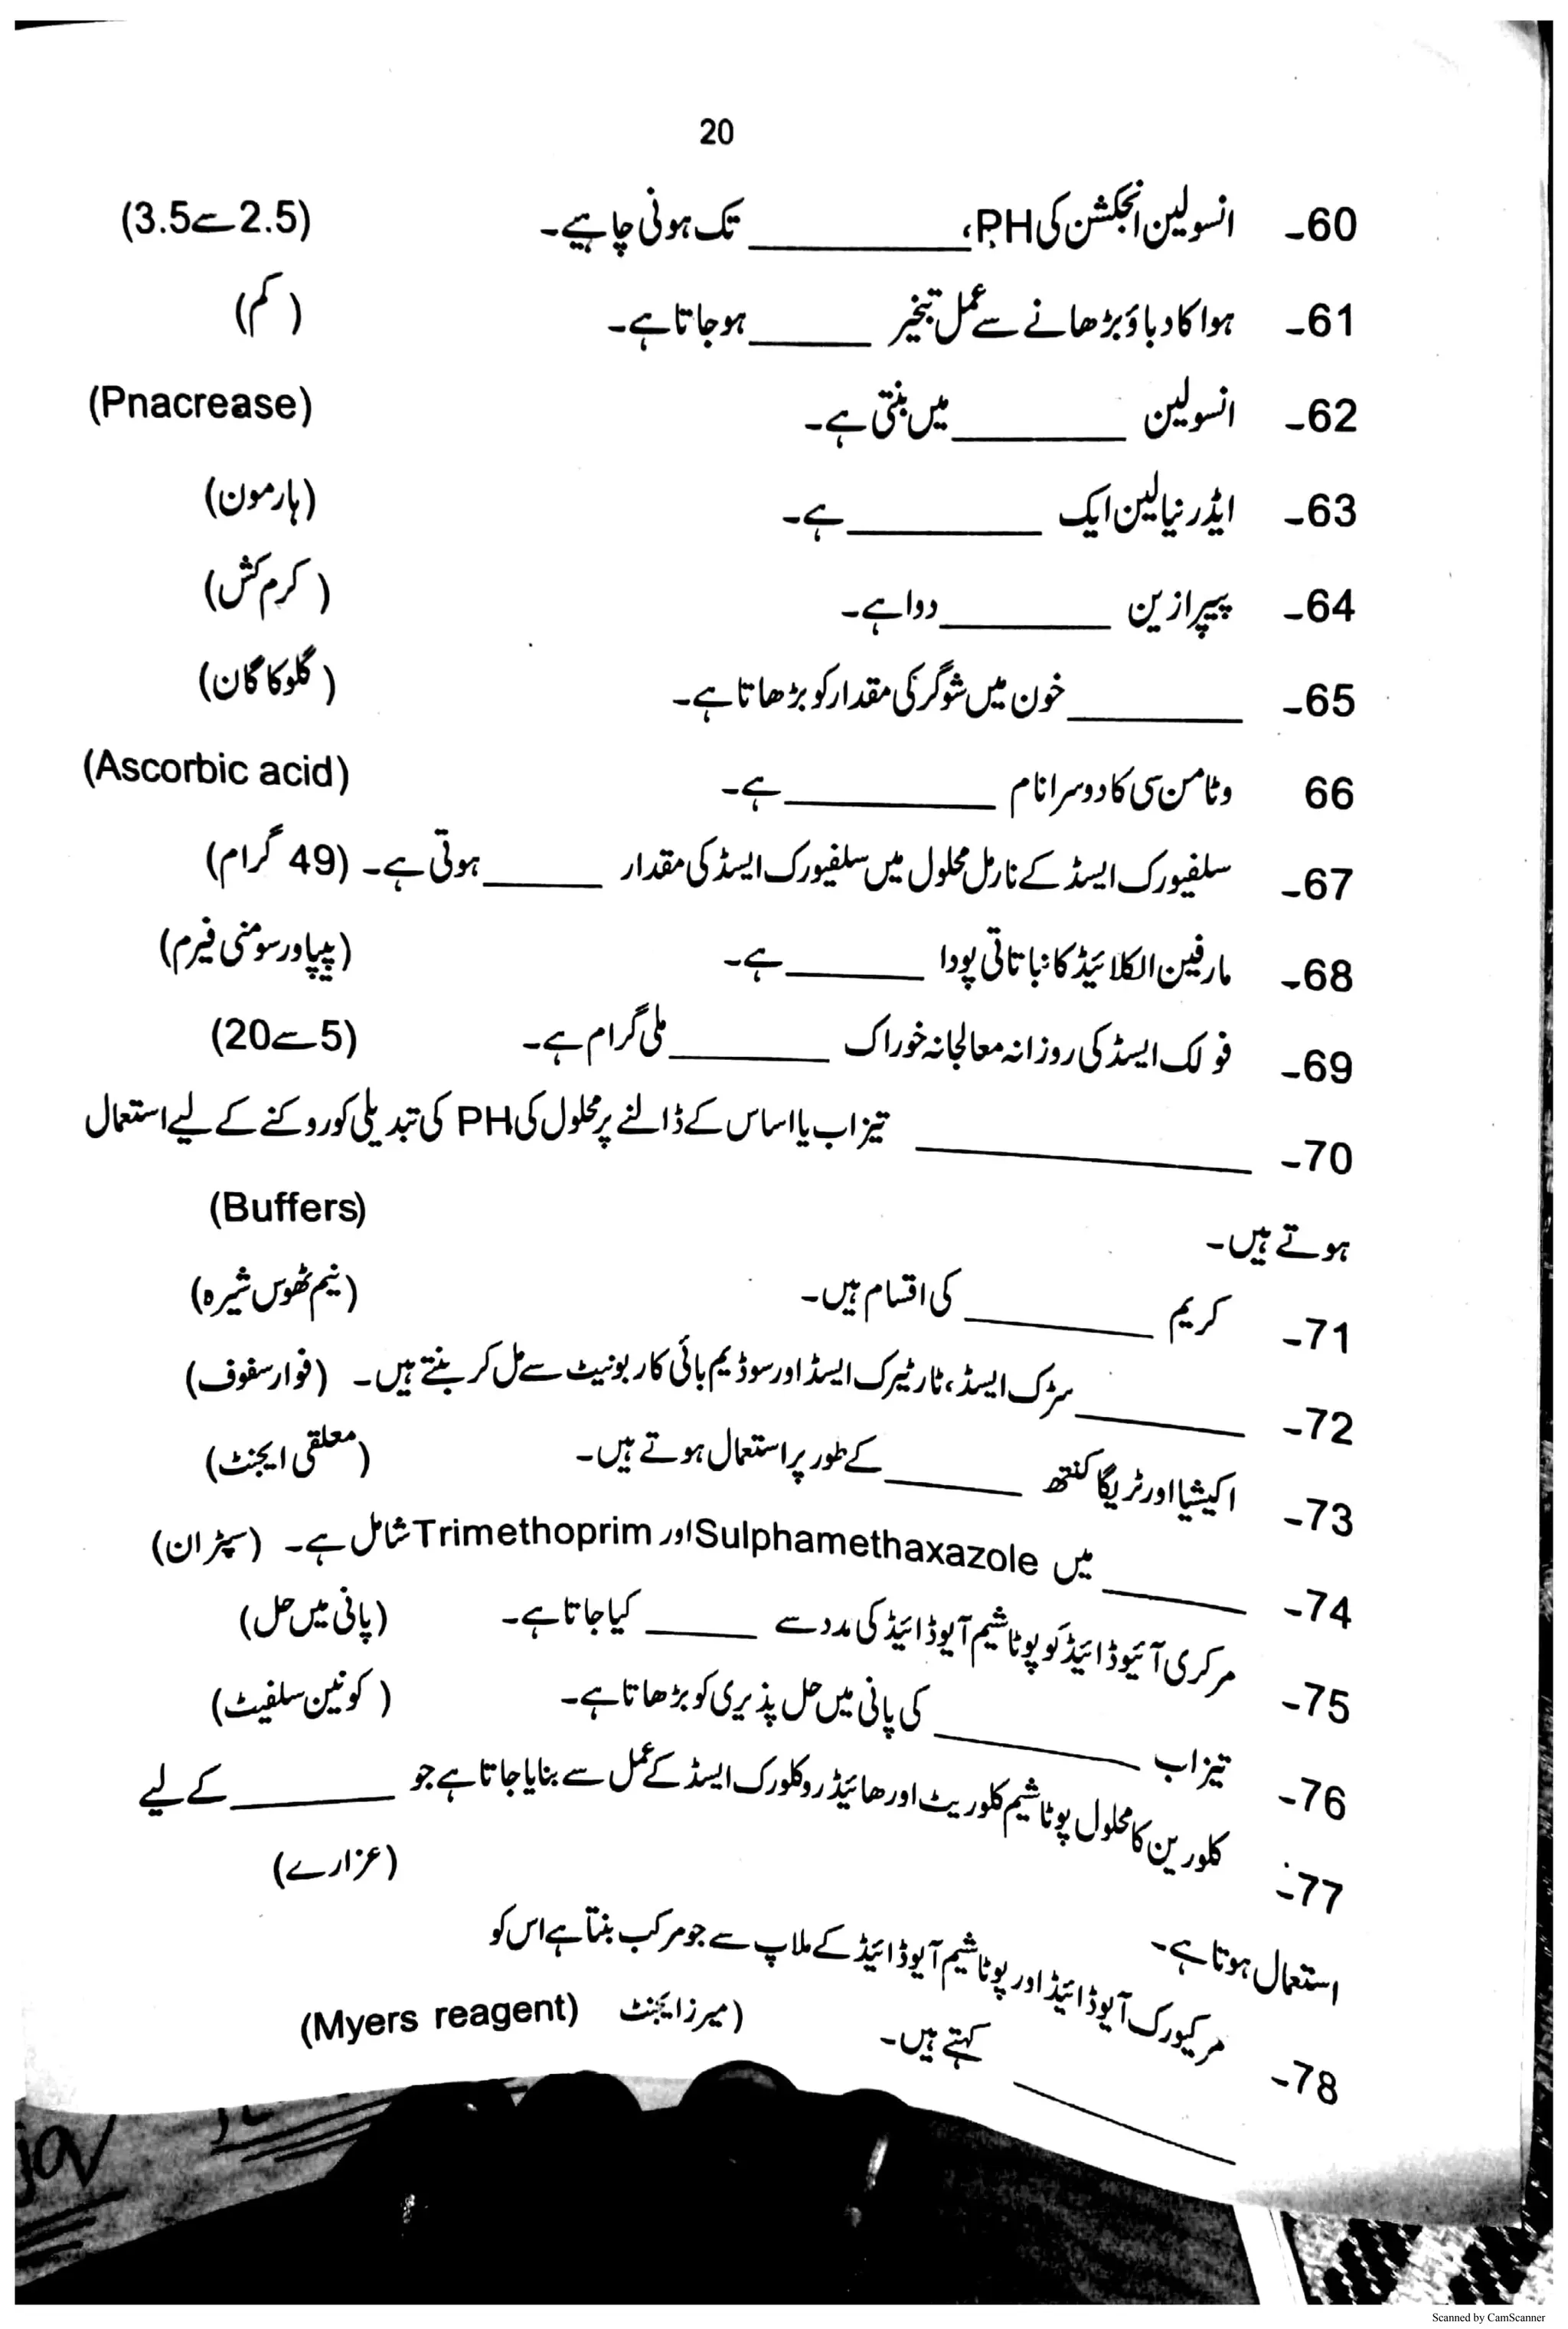 20
60- انسولین انجکشن کی PH، ________ تک ہونی چاہیے۔ (2.5 سے 3.5)
61- ہوا کا دباؤ بڑھانے سے عمل تبخیر ________ ہو جاتا ہے۔ (کم)
62- انسولین ________ میں بنتی ہے۔ (Pnacrease)
63- ایڈرنیالین ایک ________ ہے۔ (ہارمون)
64- پیپرازین ________ دوا ہے۔ (کرم کش)
65- ________ خون میں شوگر کی مقدار کو بڑھاتا ہے۔ (گلوکاگان)
66 وٹامن سی کا دوسرا نام ________ ہے۔ (Ascorbic acid)
67- سلفیورک ایسڈ کے نارمل محلول میں سلفیورک ایسڈ کی مقدار ________ ہوتی ہے۔ (49 گرام)
68- مارفین الکلائیڈ کا نباتاتی پودا ________ ہے۔ (پیپاور سومنی فیرم)
69- فولک ایسڈ کی روزانہ معالجانہ خوراک ________ ملی گرام ہے۔ (5 سے 20)
70- ________ تیزاب یا اساس کے ڈالنے پر محلول کی PH کی تبدیلی کو روکنے کے لیے استعمال
ہوتے ہیں۔ (Buffers)
71- کریم ________ کی اقسام ہیں۔ (نیم ٹھوس شیرہ)
72- ________ سٹرک ایسڈ، ٹارٹیرک ایسڈ اور سوڈیم بائی کاربونیٹ سے مل کر بنتے ہیں۔ (فوار سفوف)
73- اکیشیا اور ٹریگا کنتھ ________ کے طور پر استعمال ہوتے ہیں۔ (معلقی ایجنٹ)
74- ________ میں Sulphamethaxazole اور Trimethoprim شامل ہے۔ (سپٹران)
75- مرکری آئیوڈائیڈ کو پوٹاشیم آیوڈائیڈ کی مدد سے ________ کیا جاتا ہے۔ (پانی میں حل)
76- تیزاب ________ کی پانی میں حل پذیری کو بڑھاتا ہے۔ (کونین سلفیٹ)
77- کلورین کا محلول پوٹاشیم کلوریٹ اور ھائیڈروکلورک ایسڈ کے عمل سے بنایا جاتا ہے جو ________ کے لیے
استعمال ہوتا ہے۔ (غرارے)
78- مرکیورک آیوڈائیڈ اور پوٹاشیم آیوڈائیڈ کے ملاپ سے جو مرکب بنتا ہے اس کو
________ کہتے ہیں۔ (میرز ایجنٹ) (Myers reagent)
Scanned by CamScanner